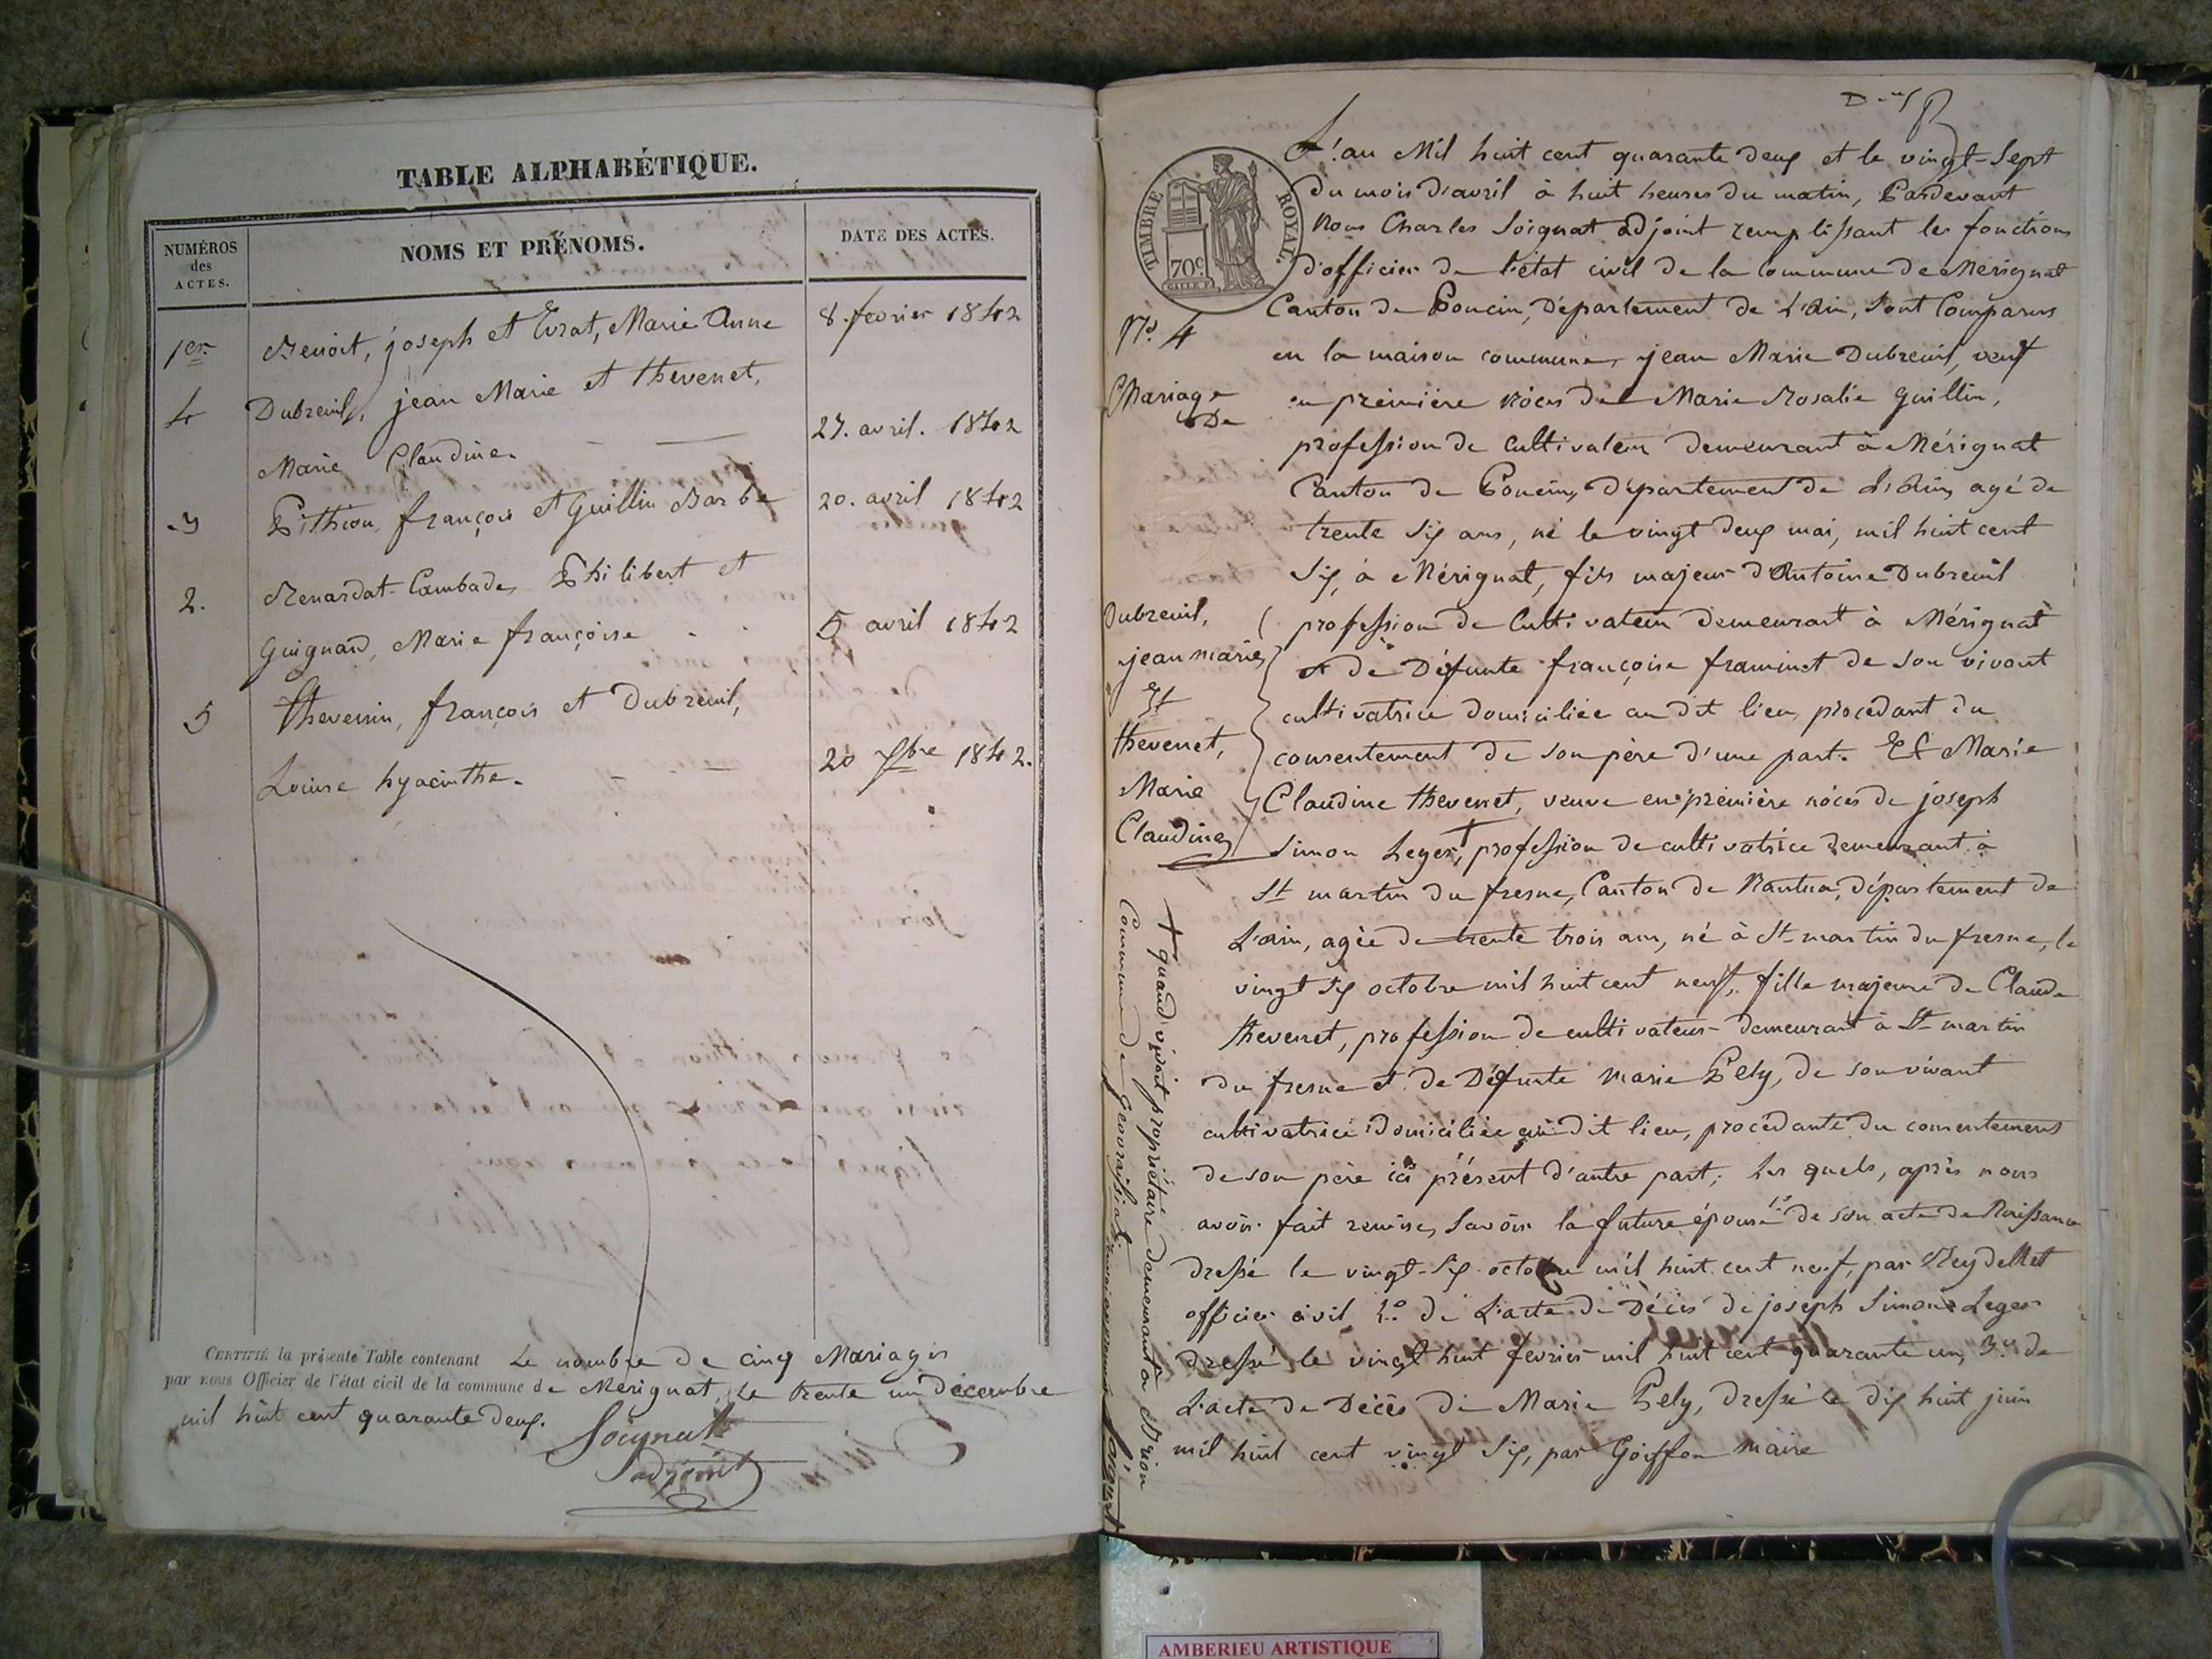 TABLE ALPHABÉTIQUE.
NUMÉROS des ACTES.
NOMS ET PRÉNOMS.
DATE DES ACTES.
1er Benoit, joseph et Evrat, Marie Anne 8. fevrier 1842
4 Dubreuil, jean Marie et thevenet,
Marie Claudine. 27. avril. 1842
3 Pithion, françois et Guillin Barbe 20. avril 1842
2. Renardat-Cambade, Philibert et
Guignard, Marie françoise 5 avril 1842
5 thevenin, françois et Dubreuil,
Louise hyacinthe. 20 1842.
CERTIFIÉ la présente Table contenant Le nombre de cinq Mariages
par nous Officier de l'état civil de la commune de Merignat, Le trente un décembre
mil huit cent quarante deux.
Soignat
adjoint
L'an Mil huit cent quarante deux et le vingt-sept
du mois d'avril à huit heures du matin, Pardevant
Nous Charles Soignat adjoint remplissant les fonctions
d'officier de l'état civil de la Commune de Mérignat
Canton de Poncin, Département de L'Ain, sont Comparus
en la maison commune, jean Marie Dubreuil, veuf
en première nôces de Marie Rosalie Guillin,
profession de Cultivateur demeurant à Mérignat
Canton de Poncin, département de L'Ain, agé de
trente six ans, né le vingt deux mai, mil huit cent
six, à Mérignat, fils majeur d'Antoine Dubreuil
profession de Cultivateur demeurant à Mérignat
et de Défunte françoise framinet de son vivant
cultivatrice domiciliée au dit lieu, procédant du
consentement de son père d'une part. Et Marie
Claudine thevenet, veuve en première nôces de joseph
Simon Leger, + profession de cultivatrice demeurant à
St martin du fresne, Canton de Nantua, département de
L'ain, agée de trente trois ans, né à St martin du fresne, le
vingt six octobre mil huit cent neuf, fille majeure de Claude
thevenet, profession de cultivateur demeurant à St martin
du fresne et de Défunte Marie Pely, de son vivant
cultivatrice domiciliée au dit lieu, procédante du consentement
de son père ici présent d'autre part; Les quels, après nous
avoir fait remise, savoir la future épouse 1° de son acte de Naissance
dressé le vingt-six octobre mil huit cent neuf, par Reydellet
officier civil 2° de L'acte de Décès de joseph Simon Leger
dressé le vingt huit fevrier mil huit cent quarante un, 3° de
L'acte de Décès de Marie Pely, dressé le dix huit juin
mil huit cent vingt six, par Goiffon maire
TIMBRE ROYAL.
70c
N° 4
Mariage
De
Dubreuil,
jean marie
Et
thevenet,
Marie
Claudine
+ quand vivoit propriétaire demeurant à Brion
Commune de Geovreissiat
Soignat
AMBERIEU ARTISTIQUE